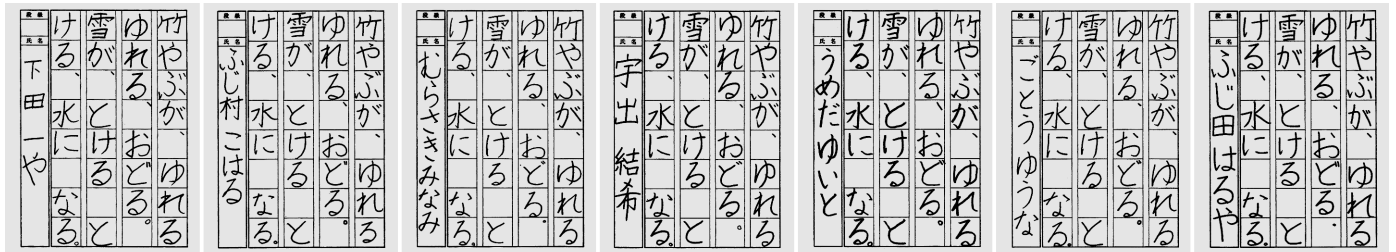 竹やぶが、ゆれる
ゆれる、おどる。
雪が、とける と
ける、水に なる。
段級
氏名
下田一や
竹やぶが、ゆれる
ゆれる、おどる。
雪が、とける と
ける、水に なる。
段級
氏名
ふじ村 こはる
竹やぶが、ゆれる
ゆれる、おどる。
雪が、とける と
ける、水に なる。
段級
氏名
むらさきみなみ
竹やぶが、ゆれる
ゆれる、おどる。
雪が、とける と
ける、水に なる。
段級
氏名
宇出 結希
竹やぶが、ゆれる
ゆれる、おどる。
雪が、とける と
ける、水に なる。
段級
氏名
うめだ ゆいと
竹やぶが、ゆれる
ゆれる、おどる。
雪が、とける と
ける、水に なる。
段級
氏名
ごとう ゆうな
竹やぶが、ゆれる
ゆれる、おどる。
雪が、とける と
ける、水に なる。
段級
氏名
ふじ田 はるや